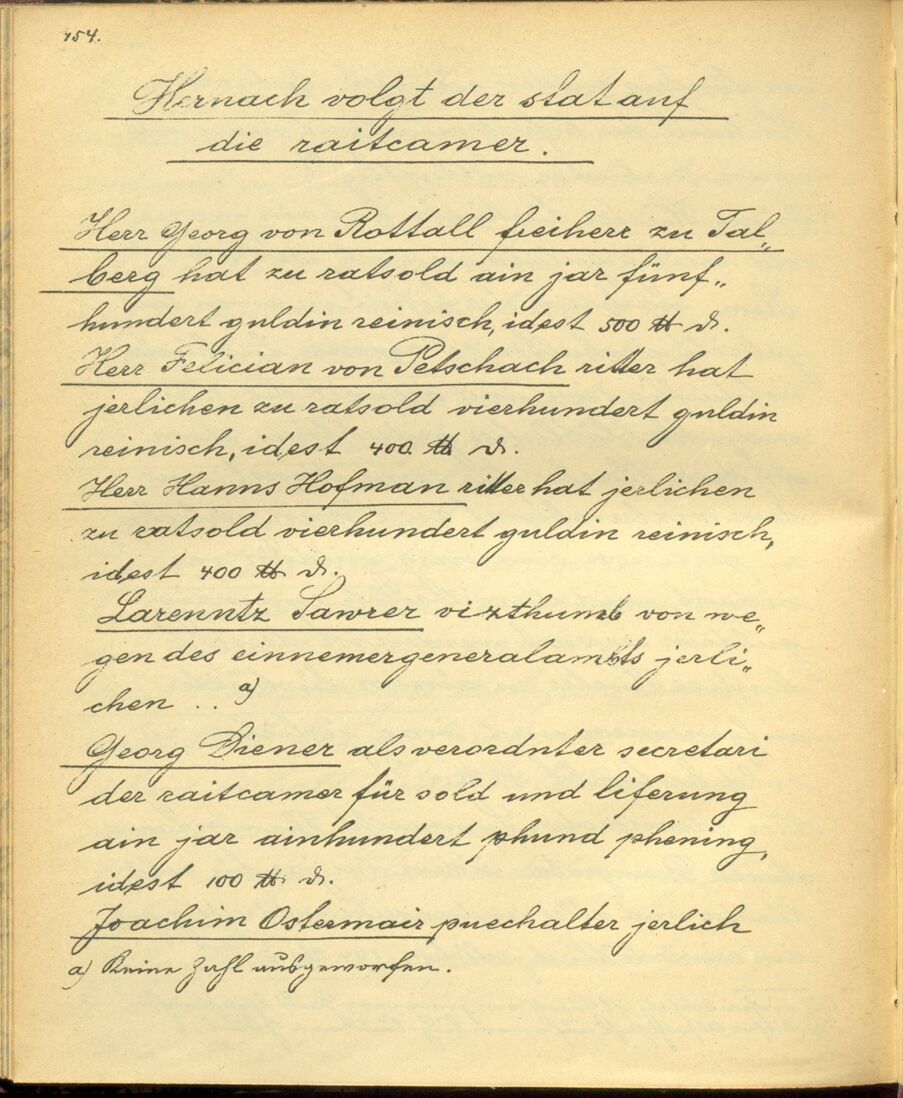 154.
Hernach volgt der stat auf
die raitcamer.
Herr Georg von Rottall freiherr zu Tal„
berg hat zu ratsold ain jar fünf„
hundert guldin reinisch, idest 500 ℔ ₰.
Herr Felician von Petschach ritter hat
jerlichen zu ratsold vierhundert guldin
reinisch, idest 400 ℔ ₰.
Herr Hanns Hofman ritter hat jerlichen
zu ratsold vierhundert guldin reinisch,
idest 400 ℔ ₰.
Larenntz Sawrer vizthumb von we„
gen des einnemergeneralambts jerli„
chen .. a)
Georg Diener als verordnter secretari
der raitcamer für sold und liferung
ain jar ainhundert phund phening,
idest 100 ℔ ₰.
Joachim Ostermair puechalter jerlich
a) Keine Zahl ausgeworfen.